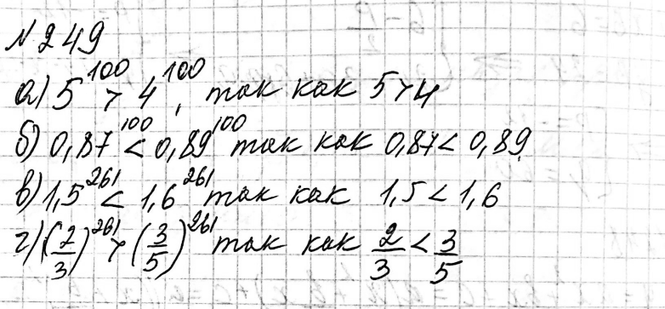 № 249
а) 5^100 > 4^100, так как 5 > 4
б) 0,87^100 < 0,89^100 так как 0,87 < 0,89
в) 1,5^261 < 1,6^261 так как 1,5 < 1,6
г) (2/3)^261 > (3/5)^261 так как 2/3 < 3/5